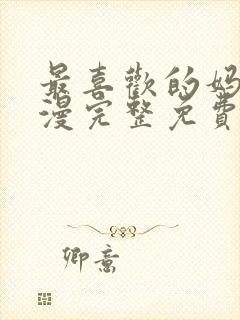 最喜歡的妈
漫完整免費
卿意